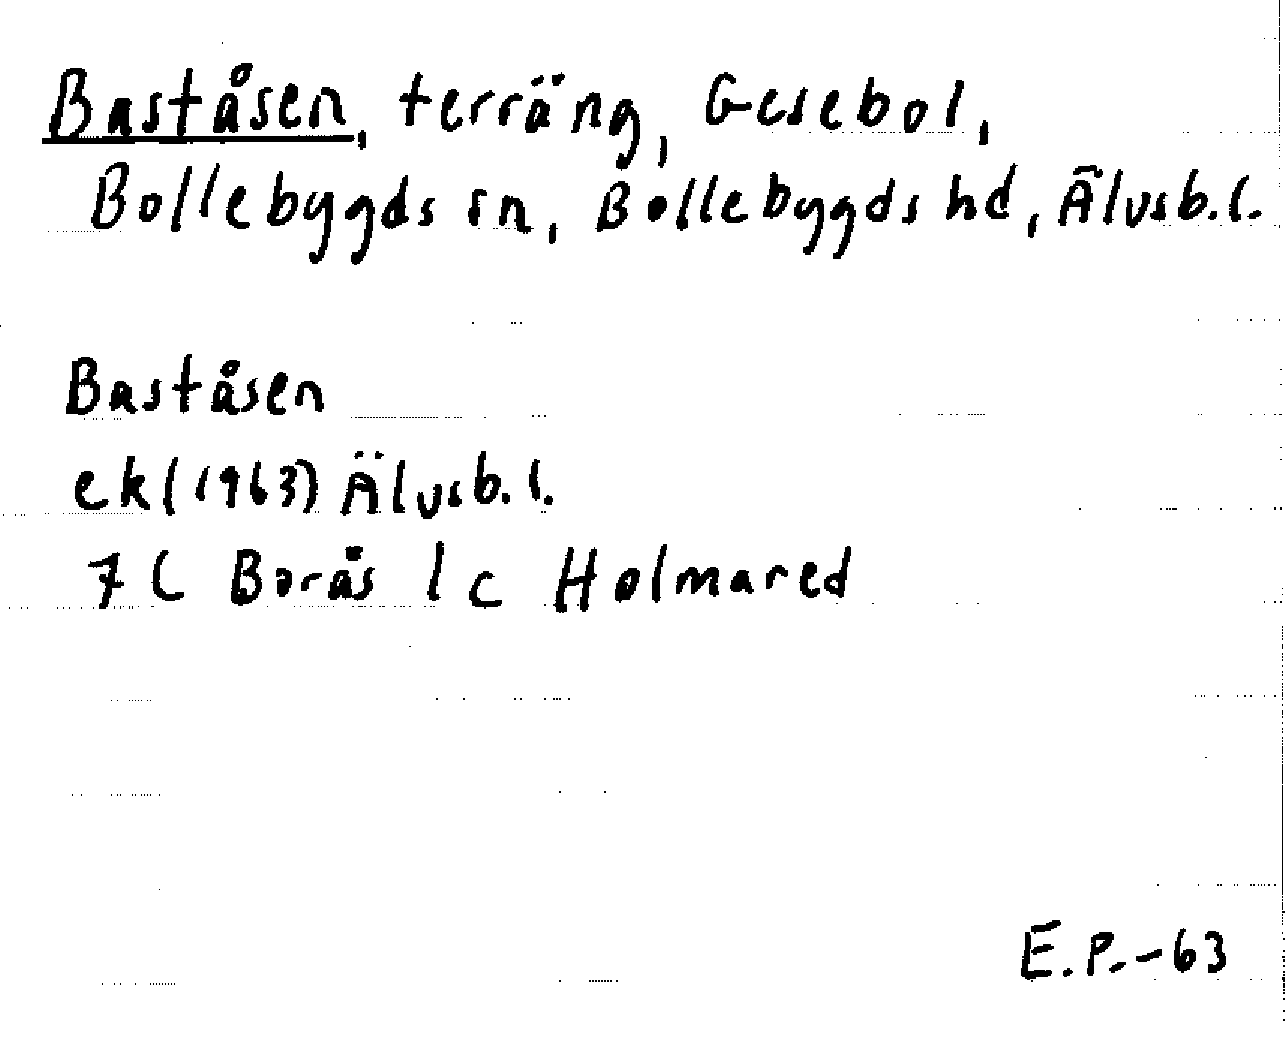 Baståsen, terräng, Gesebol,
Bollebygds sn, Bollebygds hd, Älvsb.l.
Baståsen
ek (1963) Älvsb.l.
7 C Borås 1 c Holmared
E.P.-63